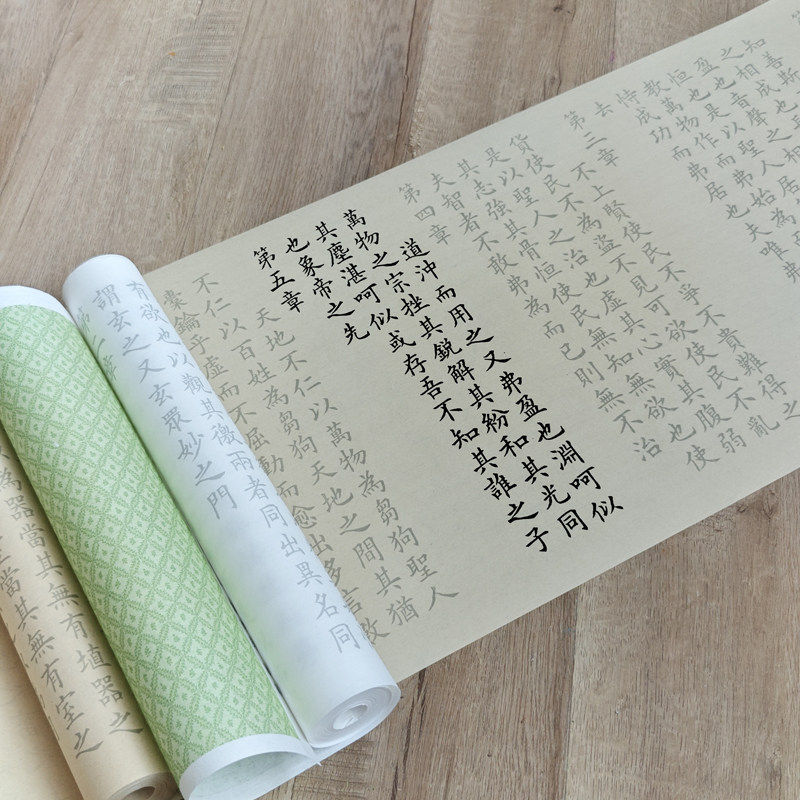 知善斯
之相成也
盈也音聲之相
恒也是以聖人居
教萬物作而弗始也為而
恃成功而弗居也夫唯弗
去
第三章
不上賢使民不爭不貴難得之
貨使民不為盜不見可欲使民不亂
是以聖人之治也虛其心實其腹弱
其志強其骨恒使民無知無欲也使
夫智者不敢弗為而已則無不治
第四章
道沖而用之又弗盈也淵呵似
萬物之宗挫其銳解其紛和其光同
其塵湛呵似或存吾不知其誰之子
也象帝之先
第五章
天地不仁以萬物為芻狗聖人
不仁以百姓為芻狗天地之間其猶
籥乎虛而不屈動而愈出多言
有欲也以觀其徼兩者同出異名同
謂玄之又玄眾妙之門
為器當其無有埴器之
當其無有室之